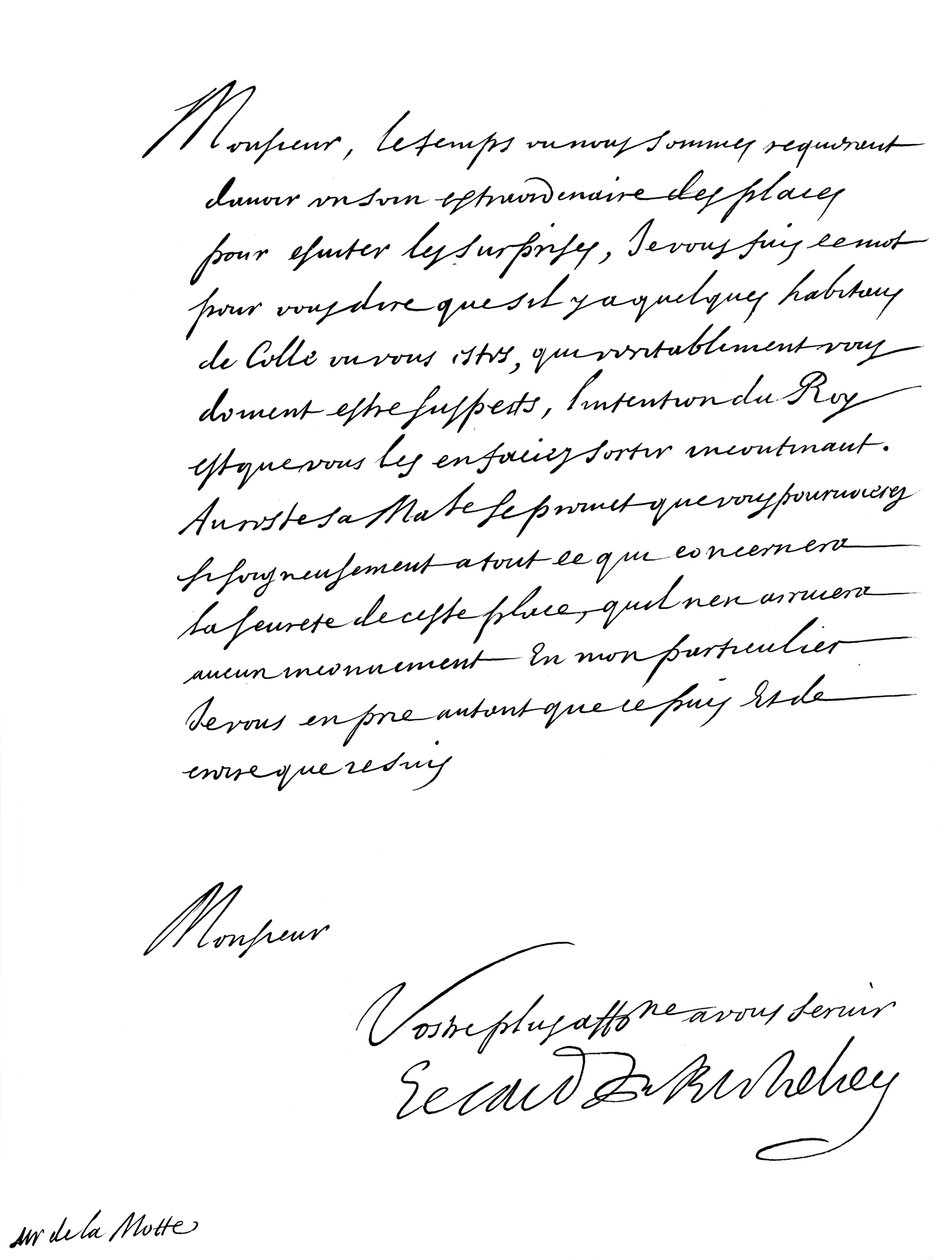 Monsieur, le temps ou nous sommes requerant
davoir un soin extraordinaire des places
pour esviter les surprises, Je vous fais ce mot
pour vous dire que sil y a quelques habitans
de ou vous estes, qui veritablement vous
doivent estre suspects, lintention du Roy
est que vous les en faciez sortir incontinant.
Au reste sa Mate se promet que vous pourvoierez
si soigneusement a tout ce qui concernera
la seurete de ceste place, quil nen arrivera
aucun inconvenient En mon particulier
Je vous en prie autant que ie puis Et de
croire que ie suis
Monsieur
Vostre plus affonne a vous servir
Le Card de Richelieu
sur de la Motte